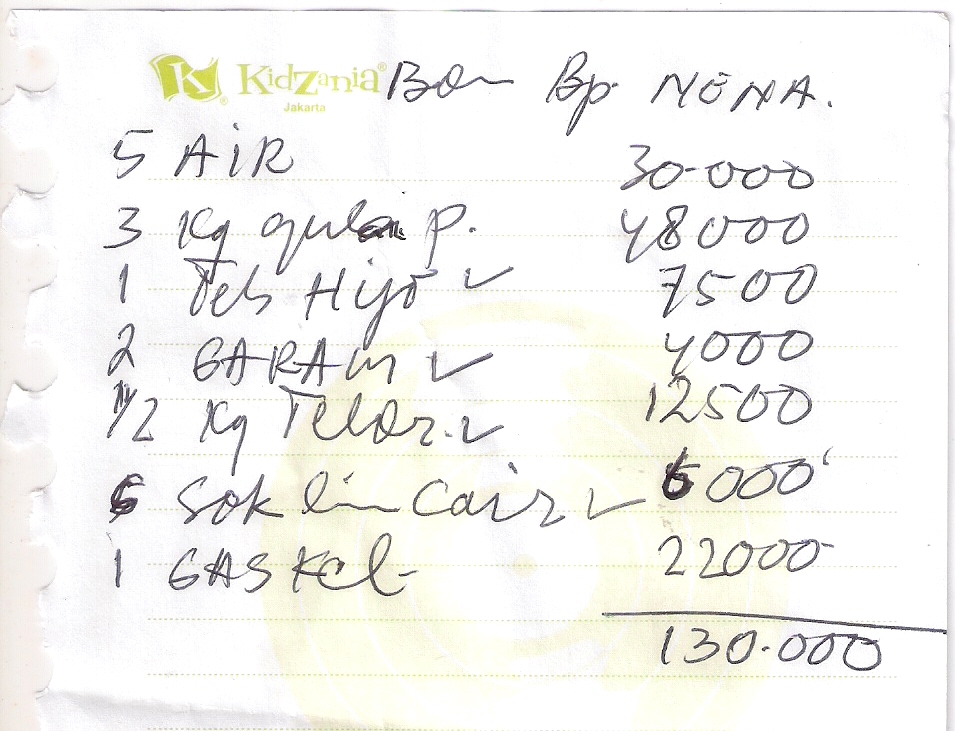 KidZania® Bon Bp. NENA.
Jakarta
5 AiR 30.000
3 Kg gula P. 48000
1 Teh Hijo ✓ 7500
2 GARAM ✓ 4000
1/2 Kg Telor. ✓ 12500
6 Sok lin Cair ✓ 6000
1 GAS Kcl 22000
130.000